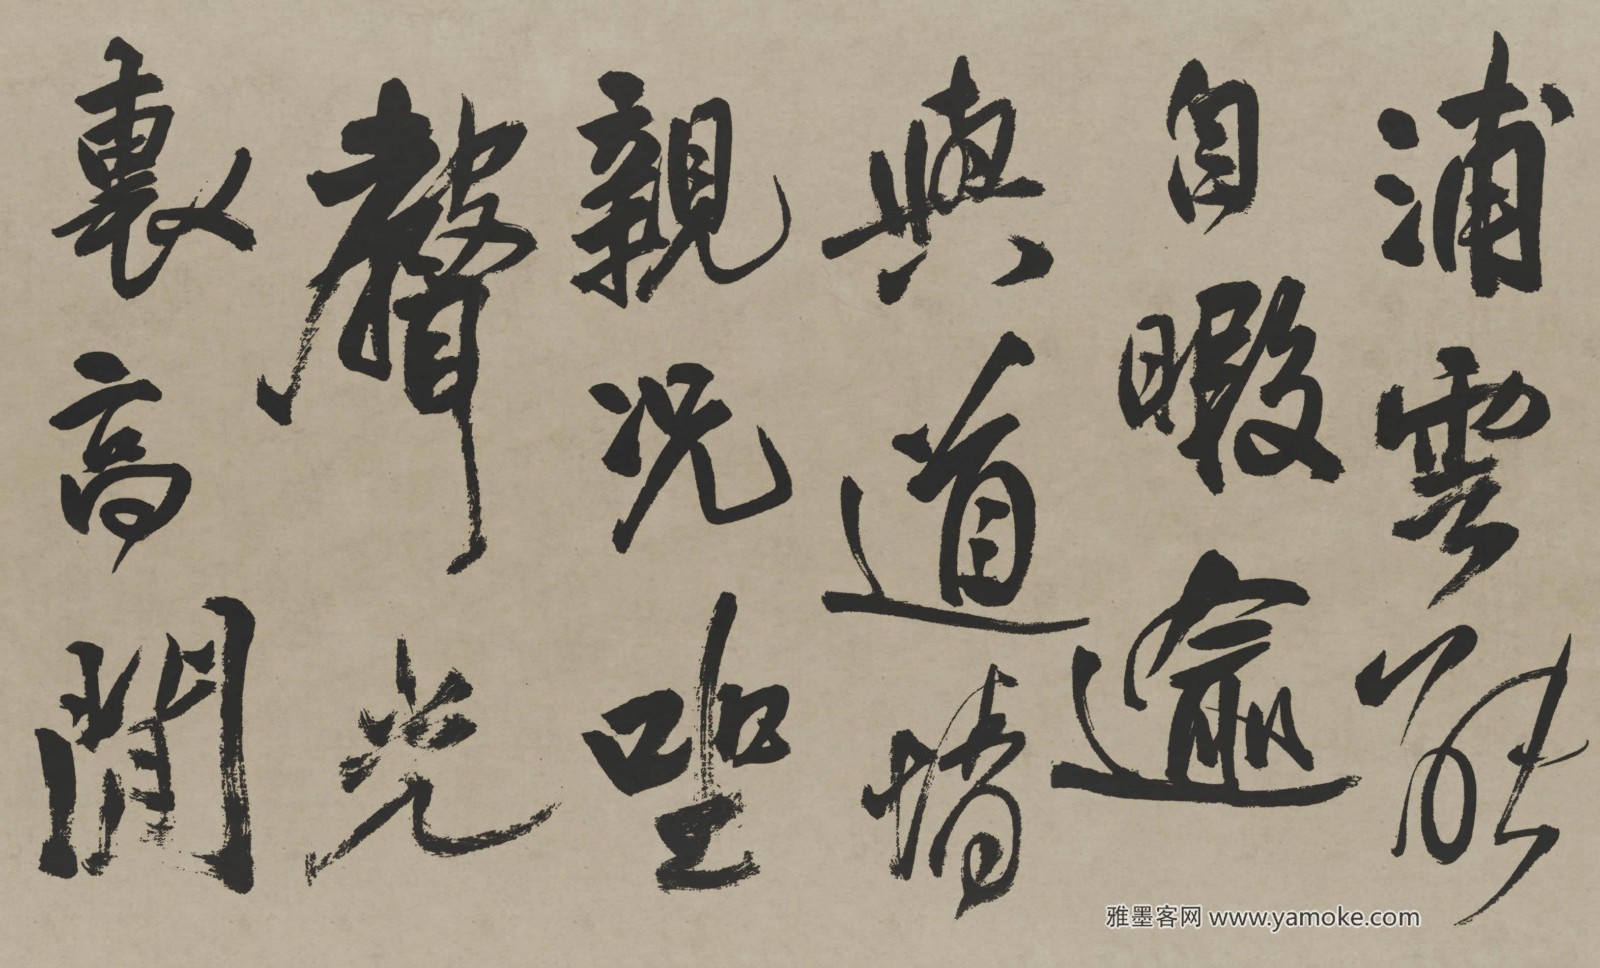 浦雲能
自暇逾
與道情
親况坐
聲光
裏高閒
雅墨客网 www.yamoke.com